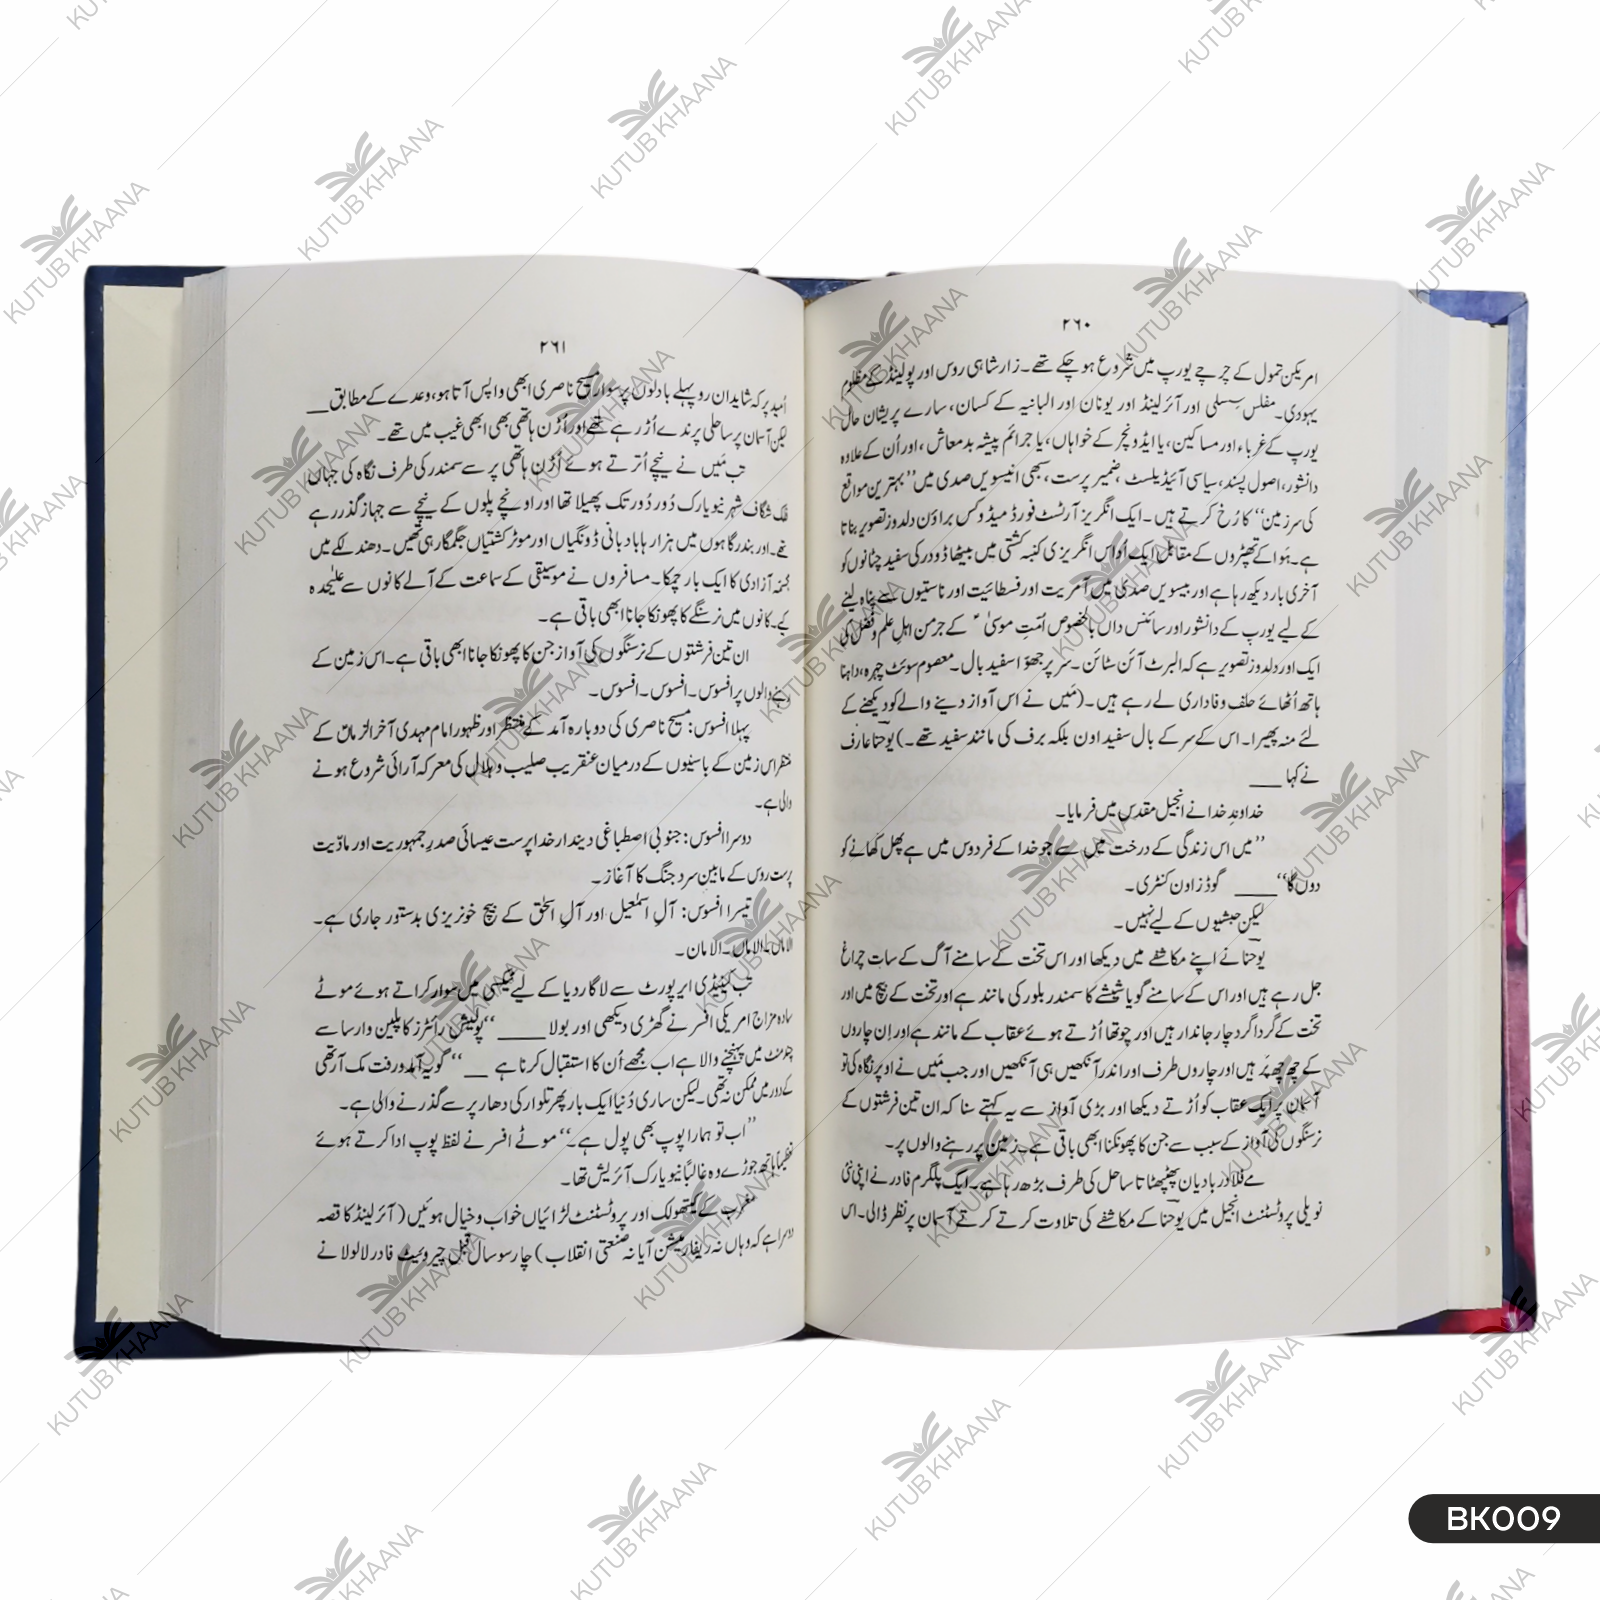 ۲۶۰
امریکن تمول کے چرچے یورپ میں شروع ہو چکے تھے۔ زار شاہی روس اور پولینڈ کے مظلوم
یہودی۔ مفلس سِسلی اور آئرلینڈ اور یونان اور البانیہ کے کسان، سارے پریشان حال
یورپ کے غرباء اور مساکین، یا ایڈونچر کے خواہاں، یا جرائم پیشہ بدمعاش، اور اُن کے علاوہ
دانشور، اصول پسند، سیاسی آئیڈیلسٹ، ضمیر پرست، سبھی انیسویں صدی میں ’’بہترین مواقع
کی سرزمین‘‘ کا رُخ کرتے ہیں۔ ایک انگریز آرٹسٹ فورڈ میڈوکس براؤن دلدوز تصویر بناتا
ہے۔ ہَوا کے تھپیڑوں کے مقابل ایک اُداس انگریزی کنبہ کشتی میں بیٹھا ڈوور کی سفید چٹانوں کو
آخری بار دیکھ رہا ہے اور بیسویں صدی میں آمریت اور فسطائیت اور ناتسیوں سے پناہ لینے
کے لیے یورپ کے دانشور اور سائنس داں بالخصوص اُمّتِ موسیٰؑ کے جرمن اہلِ علم و فضل کی
ایک اور دلدوز تصویر ہے کہ البرٹ آئن سٹائن۔ سر پر جھوّا سفید بال۔ معصوم سوئٹ چہرہ، داہنا
ہاتھ اُٹھائے حلف وفاداری لے رہے ہیں۔ (مَیں نے اس آواز دینے والے کو دیکھنے کے
لئے منہ پھیرا۔ اس کے سر کے بال سفید اون بلکہ برف کی مانند سفید تھے۔) یوحنا عارف
نے کہا ___
خداوندِ خدا نے انجیل مقدس میں فرمایا۔
’’میں اس زندگی کے درخت میں سے جو خدا کے فردوس میں ہے پھل کھانے کو
دوں گا‘‘ ___ گوڈز اون کنٹری۔
لیکن حبشیوں کے لیے نہیں۔
یوحنا نے اپنے مکاشفے میں دیکھا اور اس تخت کے سامنے آگ کے سات چراغ
جل رہے ہیں اور اس کے سامنے گویا شیشے کا سمندر بلور کی مانند ہے اور تخت کے بیچ میں اور
تخت کے گرداگرد چار جاندار ہیں اور چوتھا اُڑتے ہوئے عقاب کے مانند ہے اور اِن چاروں
کے چھ چھ پَر ہیں اور چاروں طرف اور اندر آنکھیں ہی آنکھیں اور جب مَیں نے اوپر نگاہ کی تو
آسمان پر ایک عقاب کو اُڑتے دیکھا اور بڑی آواز سے یہ کہتے سنا کہ ان تین فرشتوں کے
نرسنگوں کی آواز کے سبب سے جن کا پھونکنا ابھی باقی ہے۔ زمین پر رہنے والوں پر۔
مے فلاور بادبان پھٹپھٹاتا ساحل کی طرف بڑھ رہا ہے۔ ایک پلگرم فادر نے اپنی نئی
نویلی پروٹسٹنٹ انجیل میں یوحنا کے مکاشفے کی تلاوت کرتے کرتے آسمان پر نظر ڈالی۔ اس
۲۶۱
اُمید پر کہ شاید ان روپہلے بادلوں پر سوار مسیح ناصری ابھی واپس آتا ہو، وعدے کے مطابق ___
لیکن آسمان پر ساحلی پرندے اُڑ رہے تھے اور اُڑن ہاتھی بھی ابھی غیب میں تھے۔
تب مَیں نے نیچے اُترتے ہوئے اُڑن ہاتھی پر سے سمندر کی طرف نگاہ کی جہاں
فلک شگاف شہر نیویارک دُور دُور تک پھیلا تھا اور اونچے پلوں کے نیچے سے جہاز گذر رہے
تھے۔ اور بندرگاہوں میں ہزارہا بادبانی ڈونگیاں اور موٹر کشتیاں جگمگا رہی تھیں۔ دھندلکے میں
مجسّمہ آزادی کا ایک بار چمکا۔ مسافروں نے موسیقی کے سماعت کے آلے کانوں سے علیٰحدہ
کیے۔ کانوں میں نرسنگے کا پھونکا جانا ابھی باقی ہے۔
ان تین فرشتوں کے نرسنگوں کی آواز جن کا پھونکا جانا ابھی باقی ہے۔ اس زمین کے
رہنے والوں پر افسوس۔ افسوس۔ افسوس۔
پہلا افسوس: مسیح ناصری کی دوبارہ آمد کے منتظر اور ظہور امام مہدی آخر الزماںؑ کے
منتظر اس زمین کے باسیوں کے درمیان عنقریب صلیب و ہلال کی معرکہ آرائی شروع ہونے
والی ہے۔
دوسرا افسوس: جنوبی اصطباغی دیندار خدا پرست عیسائی صدرِ جمہوریت اور مادّیت
پرست روس کے مابین سرد جنگ کا آغاز۔
تیسرا افسوس: آلِ اسمٰعیل اور آلِ اسحٰق کے بیچ خونریزی بدستور جاری ہے۔
الامان۔ الاماں۔ الامان۔
تب کینیڈی ایرپورٹ سے لاگاردیا کے لیے ٹیکسی میں سوار کراتے ہوئے موٹے
سادہ مزاج امریکی افسر نے گھڑی دیکھی اور بولا ___ ’’پولیش رائٹرز کا پلین وارسا سے
چند منٹ میں پہنچنے والا ہے اب مجھے اُن کا استقبال کرنا ہے ___‘‘ گویہ آمدورفت مک آرتھی
کے دور میں ممکن نہ تھی۔ لیکن ساری دُنیا ایک بار پھر تلوار کی دھار پر سے گذرنے والی ہے۔
’’اب تو ہمارا پوپ بھی پول ہے۔‘‘ موٹے افسر نے لفظ پوپ ادا کرتے ہوئے
تعظیماً ہاتھ جوڑے وہ غالباً نیویارک آئریش تھا۔
مغرب کے کیتھولک اور پروٹسٹنٹ لڑائیاں خواب و خیال ہوئیں (آئرلینڈ کا قصہ
دوسرا ہے کہ وہاں نہ ریفارمیشن آیا نہ صنعتی انقلاب) چار سو سال قبل جیزوئیٹ فادر لالولا نے
KUTUB KHAANA
BK009